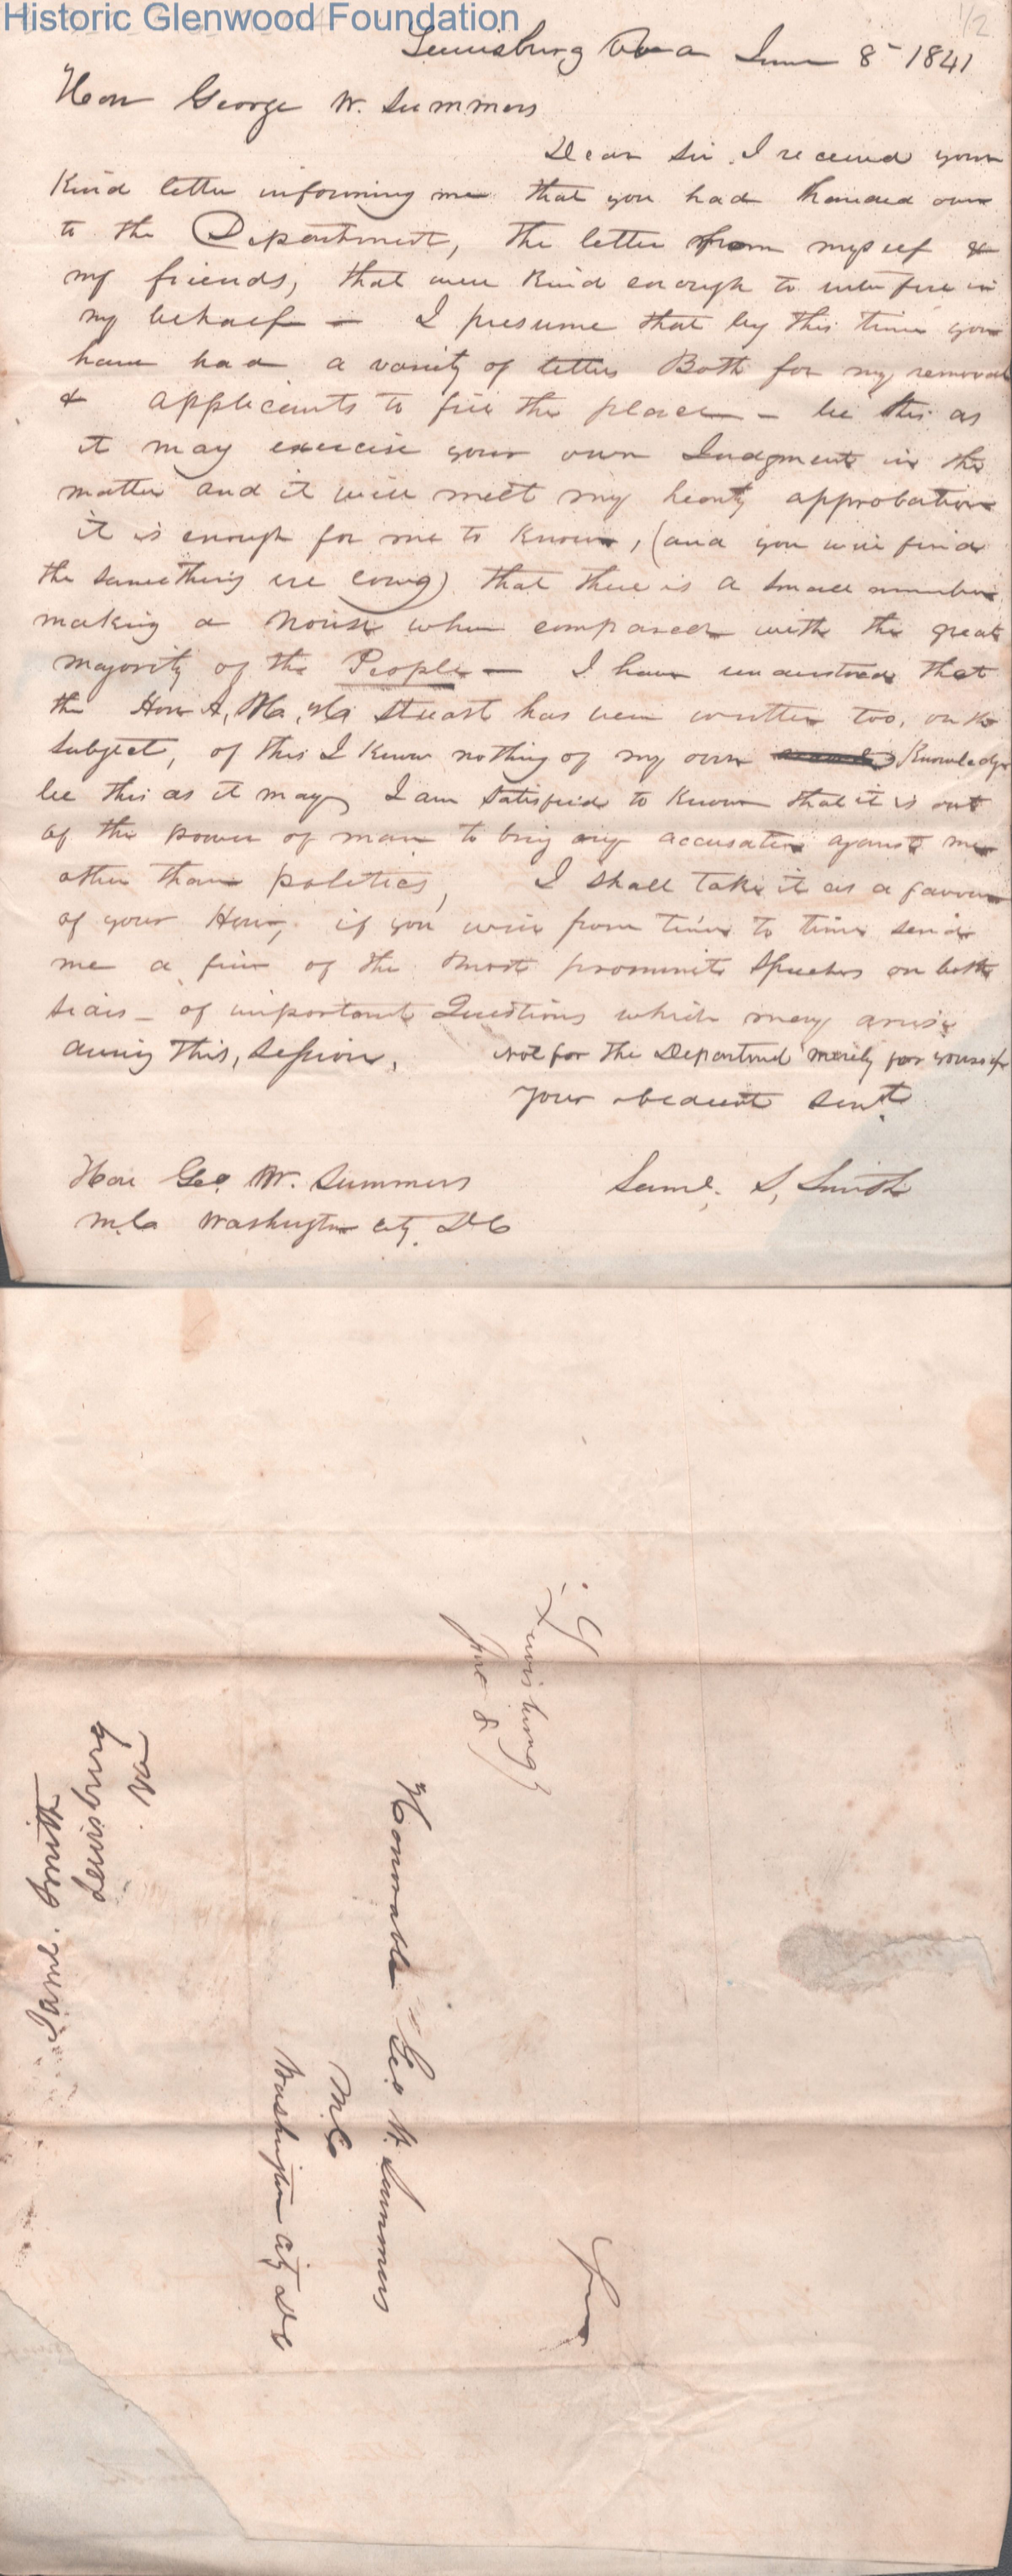 Historic Glenwood Foundation
1/2
Lewisburg Va June 8 1841
Hon George W. Summers
Dear Sir. I received your
Kind letter informing me that you had handed over
to the Department, the letter from myself &
my friends, that were kind enough to interfere in
my behalf — I presume that by this time you
have had a variety of letters Both for my removal
& applicants to fill the place — be this as
it may exercise your own Judgment in the
matter and it will meet my hearty approbation
it is enough for me to know, (and you will find
the same thing ere long) that there is a small number
making a noise when compared with the great
majority of the People — I have understood that
the Hon A, H, H, Stuart has been written too, on the
subject, of this I know nothing of my own Knowledge
be this as it may I am satisfied to know that it is out
of the power of man to bring any accusation against me
other than politics, I shall take it as a favour
of your Honr, if you will from time to time send
me a few of the most prominite Speeches on both
sides — of important Questions which may arise
during this, Session, not for the Department merely for yourself
Your obedient Servt
Saml. S, Smith
Hon Geo. W. Summers
M.C. Washington City. DC
Lewisburg
June 8
Honorable Geo W. Summers
M.C.
Washington City DC
Free
Saml. Smith
Lewisburg
Va